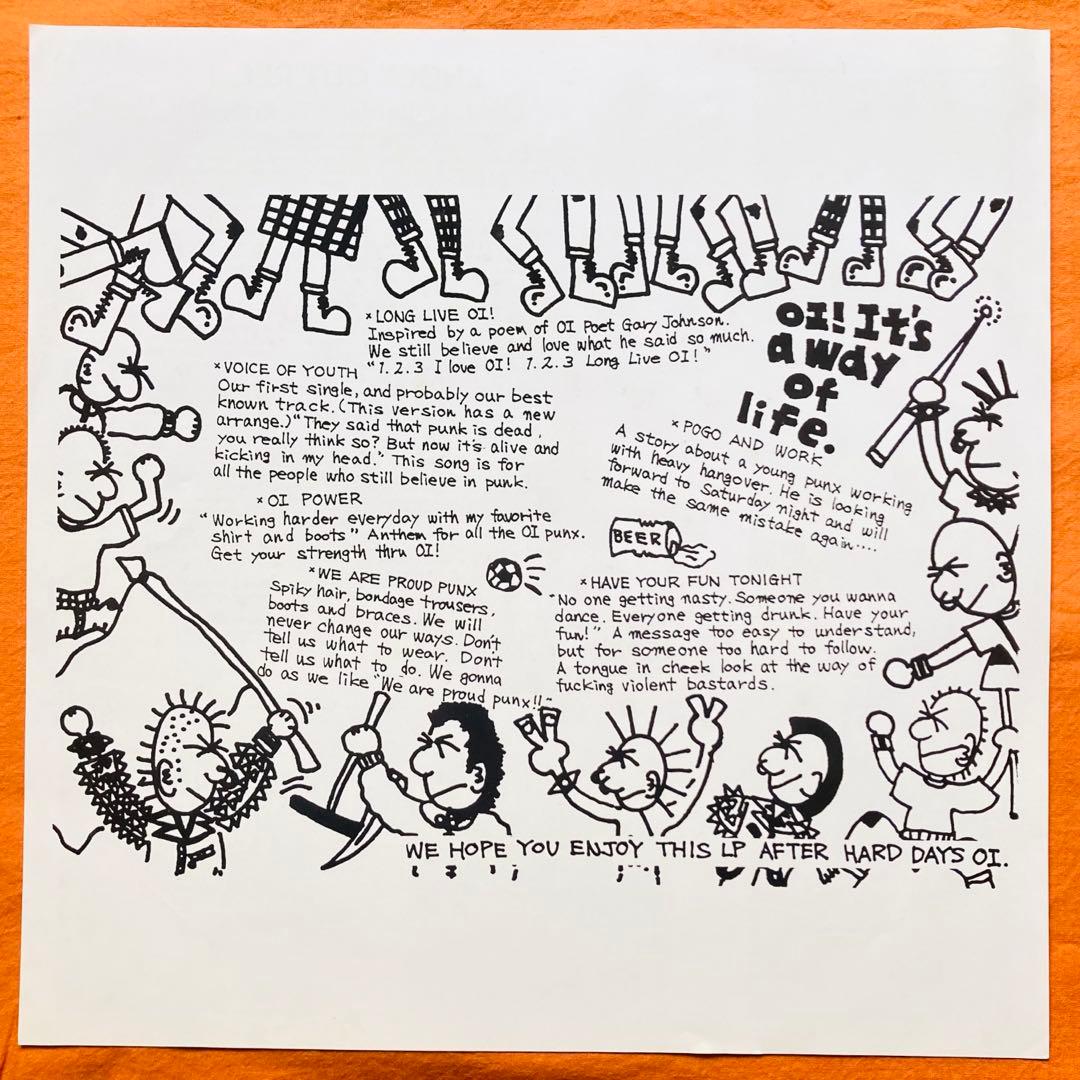 ×LONG LIVE OI!
Inspired by a poem of OI Poet Gary Johnson.
We still believe and love what he said so much.
"1.2.3 I love OI! 1.2.3 Long Live OI!"
OI! It's
a way
of
life.
×VOICE OF YOUTH
Our first single, and probably our best
known track. (This version has a new
arrange.) "They said that punk is dead,
you really think so? But now it's alive and
kicking in my head." This song is for
all the people who still believe in punk.
×POGO AND WORK
A story about a young punx working
with heavy hangover. He is looking
forward to Saturday night and will
make the same mistake again....
×OI POWER
"Working harder everyday with my favorite
shirt and boots" Anthem for all the OI punx.
Get your strength thru OI!
BEER
×WE ARE PROUD PUNX
Spiky hair, bondage trousers,
boots and braces. We will
never change our ways. Don't
tell us what to wear. Don't
tell us what to do. We gonna
do as we like "We are proud punx!!"
×HAVE YOUR FUN TONIGHT
"No one getting nasty. Someone you wanna
dance. Everyone getting drunk. Have your
fun!" A message too easy to understand,
but for someone too hard to follow.
A tongue in cheek look at the way of
fucking violent bastards.
WE HOPE YOU ENJOY THIS LP AFTER HARD DAYS OI.